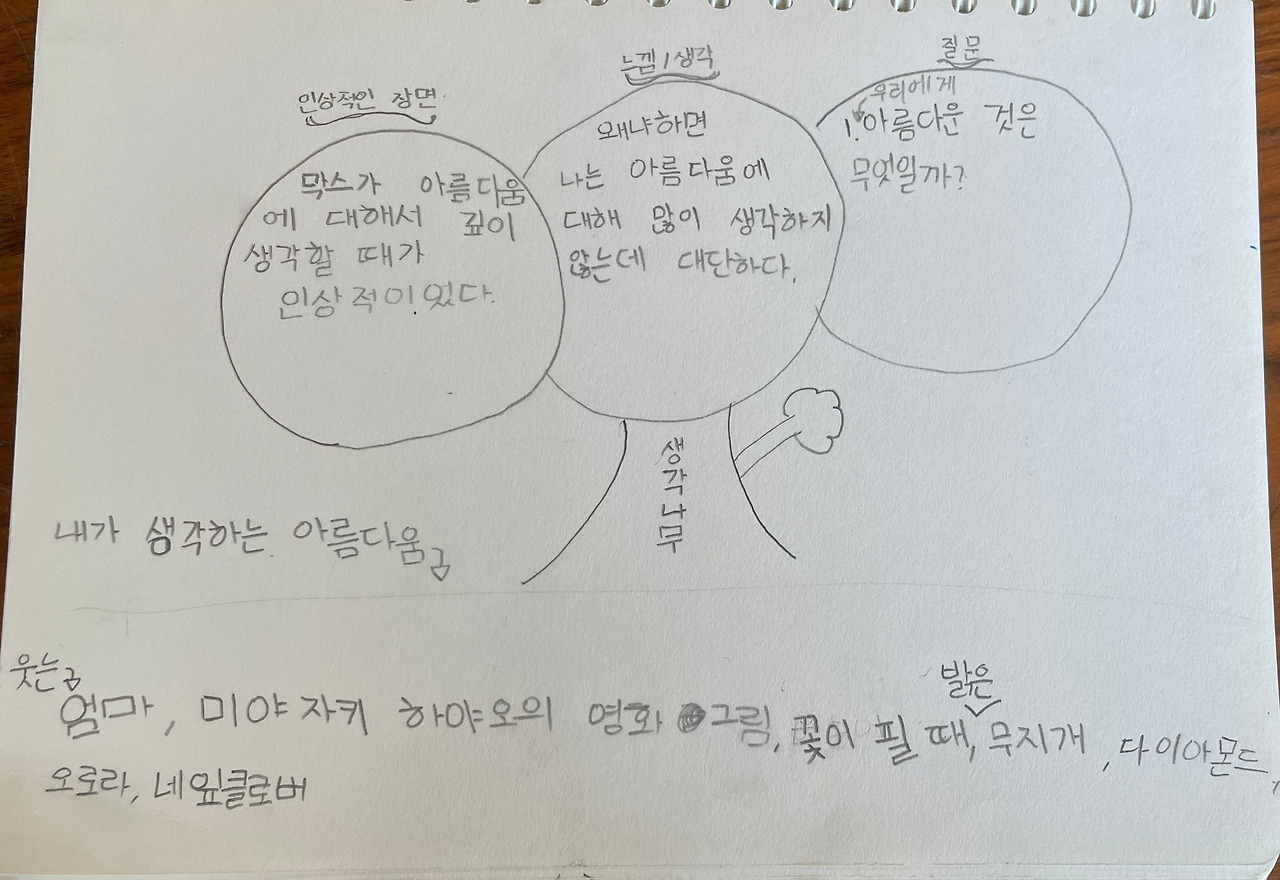 인상적인 장면
막스가 아름다움
에 대해서 깊이
생각할 때가
인상적이었다.
느낌/생각
왜냐하면
나는 아름다움에
대해 많이 생각하지
않는데 대단하다.
질문
우리에게
1. 아름다운 것은
무엇일까?
생
각
나
무
내가 생각하는 아름다움
웃는
엄마, 미야자키 하야오의 영화 그림, 꽃이 필 때, 밝은 무지개, 다이아몬드,
오로라, 네잎클로버